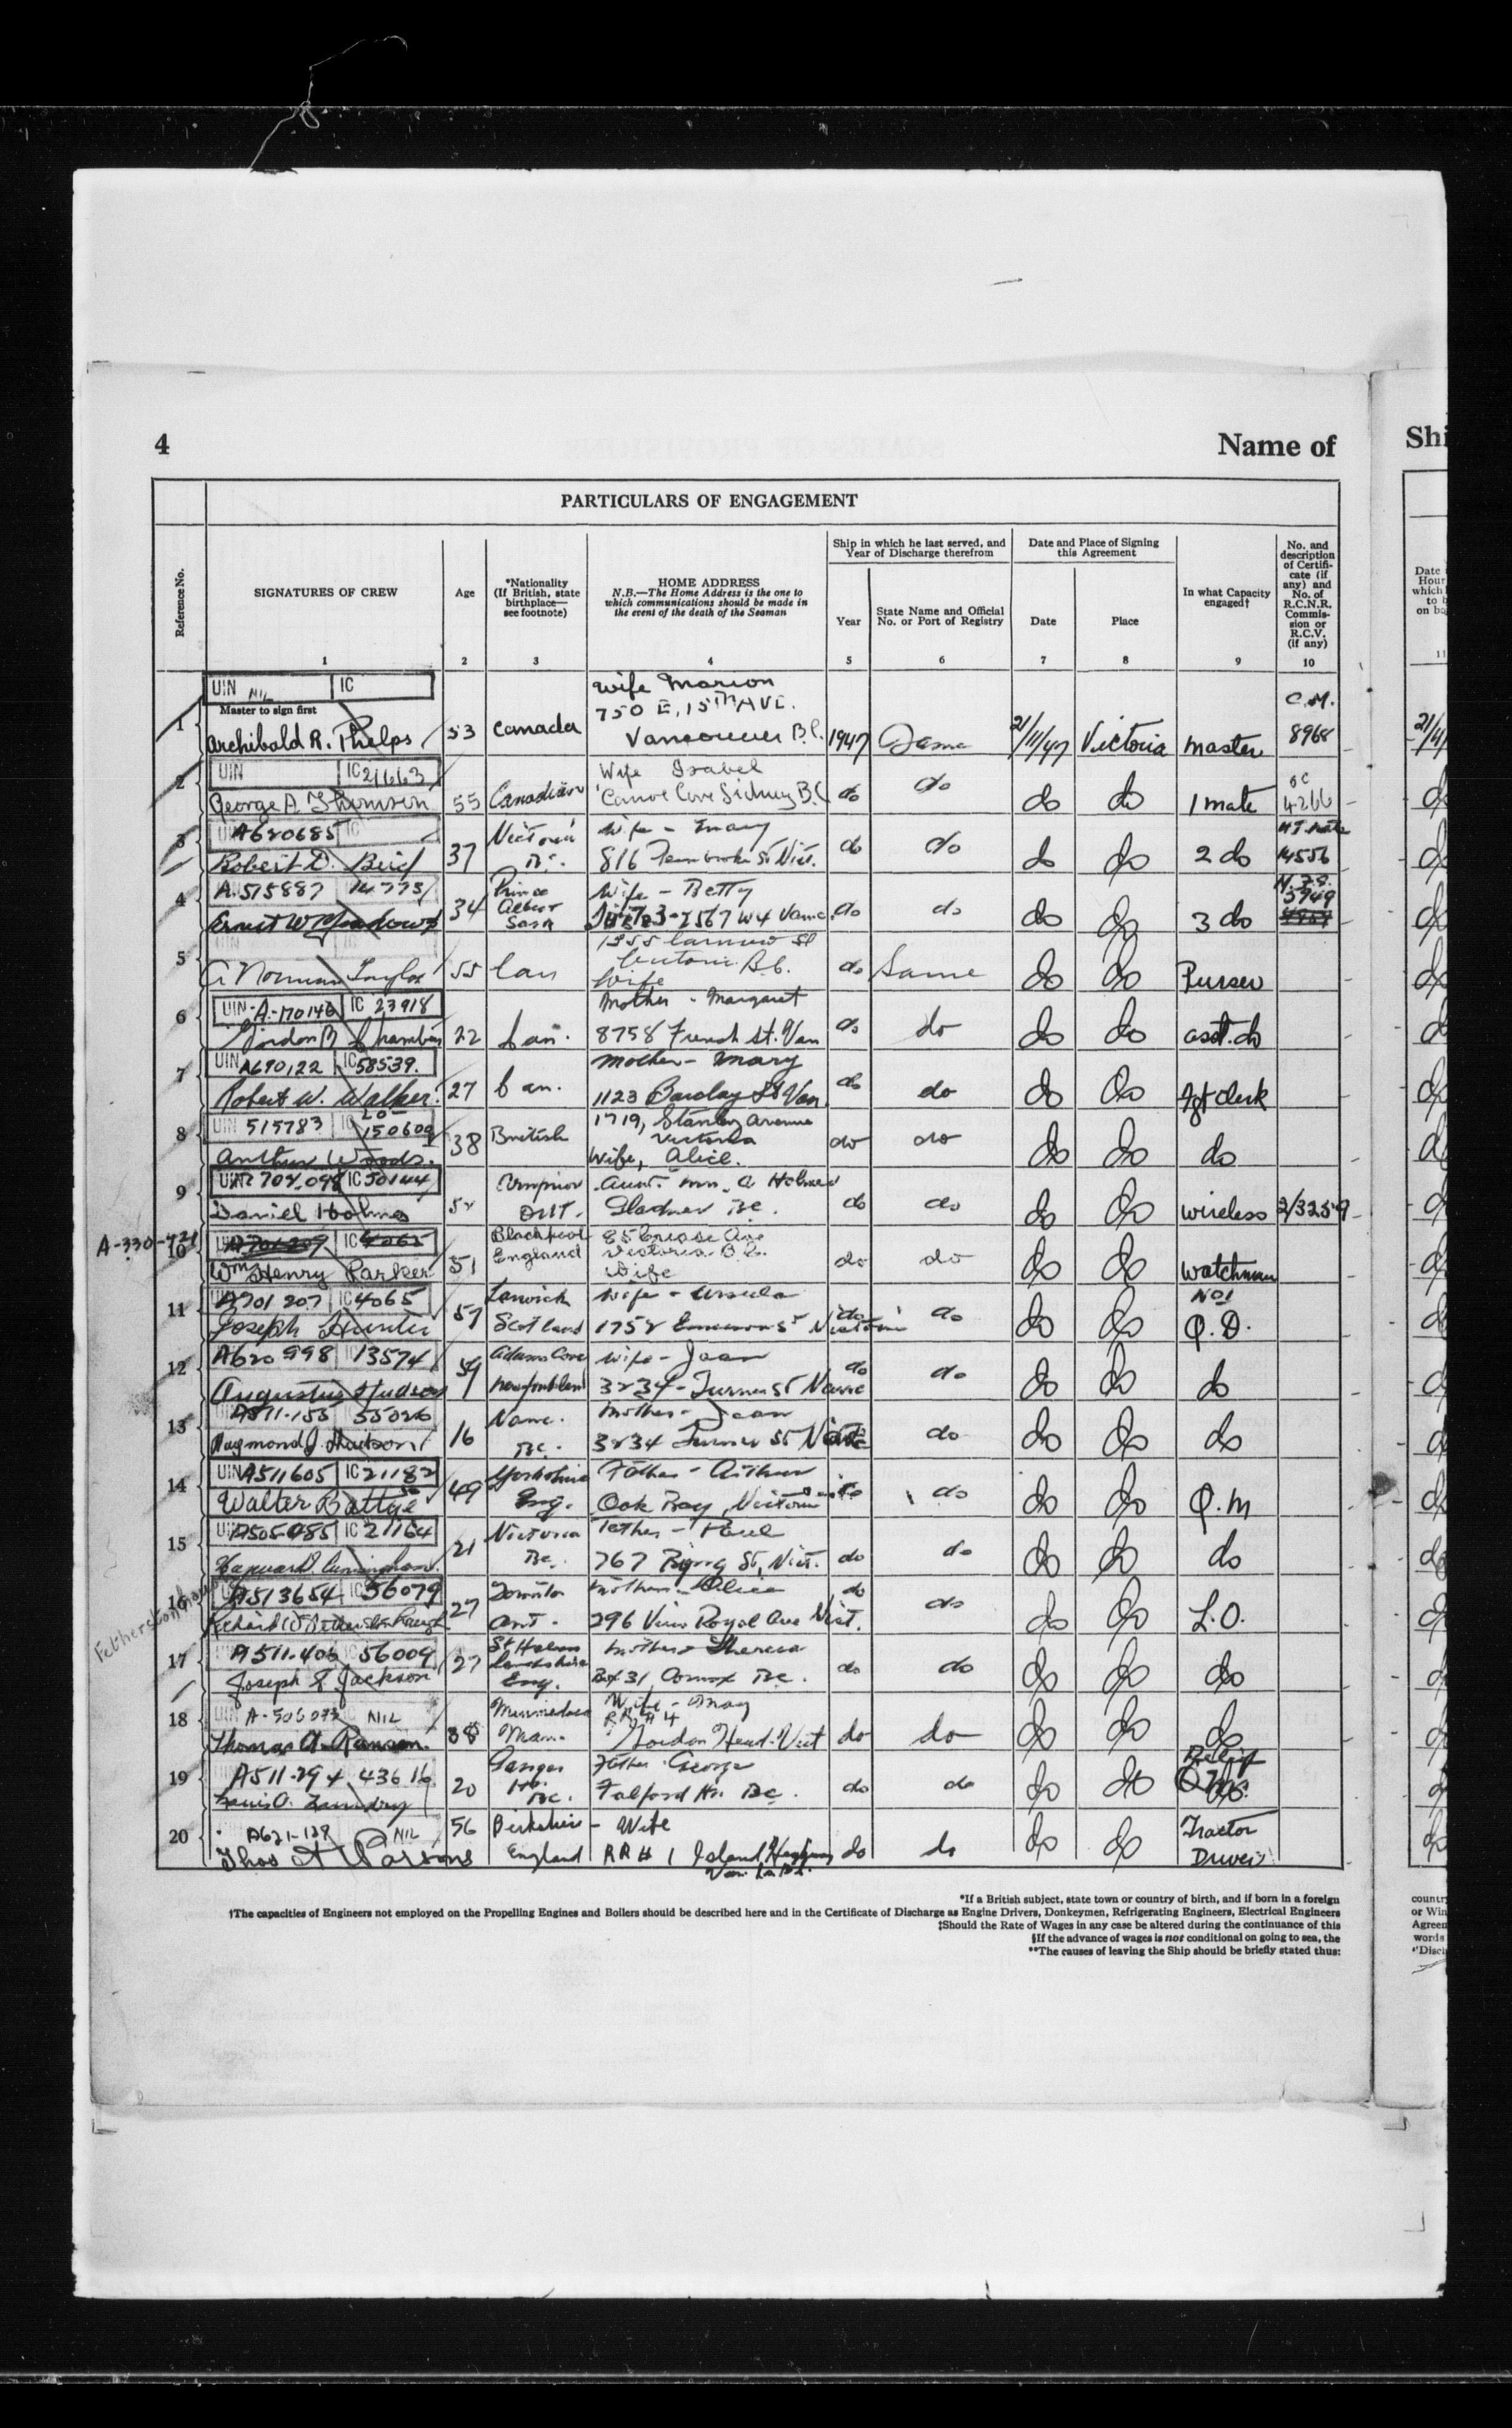 4
Name of
Shi
PARTICULARS OF ENGAGEMENT
Reference No.
SIGNATURES OF CREW
Age
*Nationality
(If British, state
birthplace—
see footnote)
HOME ADDRESS
N.B.—The Home Address is the one to
which communications should be made in
the event of the death of the Seaman
Ship in which he last served, and
Year of Discharge therefrom
Year
State Name and Official
No. or Port of Registry
Date and Place of Signing
this Agreement
Date
Place
In what Capacity
engaged†
No. and
description
of Certifi-
cate (if
any) and
No. of
R.C.N.R.
Commis-
sion or
R.C.V.
(if any)
1 2 3 4 5 6 7 8 9 10
UIN NIL IC
Master to sign first
1 Archibald R. Phelps 53 Canada Wife Marion
750 E, 15TH AVE.
Vancouver B.C. 1947 Same 21/11/47 Victoria Master C.M.
8968
UIN IC 21663
2 George A. Thomson 55 Canadian Wife Isabel
Canoe Cove Sidney B.C do do do do 1 mate
4266
A620685
3 Robert D. 37 Victoria
BC. Wife -
816 Pembroke St Vict. do do do do 2 do
14556
A.515887 14773
4 Ernest W 34 Prince
Albert
Sask Wife - Betty
2567 W4 Vanc. do do do do 3 do
5949
5 Norman Taylor 55 Can
Victoria B.C.
Wife do Same do do Purser
UIN-A-170146 IC 23918
6 Gordon 22 Can. Mother - Margaret
8758 French St. Van do do do do asst. do
UIN A690122 IC 58539.
7 Robert W. Walker. 27 Can. Mother - Mary
1123 Barclay St Van do do do do clerk
UIN 515783 150609
8 Arthur Woods. 38 British 1719, Stanley Avenue
Victoria
Wife, Alice. do do do do do
702.098 IC 50144
9 Daniel Holmes 52 Arnprior
Ont. Aunt. Mrs. A Holmes
Ladner BC. do do do do Wireless 2/3259
A-330-721
A701207 IC 4065
10 Wm Henry Parker 51 Blackpool
England
Victoria B.C.
Wife do do do do Watchman
A701207 IC 4065
11 Joseph Hunter 57 Lerwick
Scotland Wife - Ursula
Victoria do do do do No 1
Q.D.
A620998 13574
12 Augustus Hudson 59
Newfoundland Wife - Jean
3234 - Turner St Vanc do do do do do
A511-155 55026
13 Raymond J. Hudson 16 Vanc.
BC. Mother - Jean
3234 Turner St do do do do
UIN A511605 IC 21182
14 Walter Battye 49 Yorkshire
Eng. Father - Arthur
Oak Bay, Victoria do do do do Q.M
UIN A505085 IC 21164
15 Cunningham. 21 Victoria
BC. Father - Paul
767 St, Vict. do do do do do
Fetherstonhaugh
A513654 IC 56079
16 Richard W Fetherstonhaugh 27 Toronto
Ont. Mother - Alice
296 View Royal Ave Vict. do do do do L.O.
A511-406 56009
17 Joseph Jackson 27 St Helens
Lancashire
Eng. Mother Theresa
Box 31, Comox BC. do do do do do
A-506073 NIL
18 Thomas A. Ranson. 38 Minnedosa
Man. Wife - May
RR # 4
Gordon Head. Vict do do do do do
A511-294 43616
19 Louis A. 20 Ganges
BC. Father George
Fulford Hr. BC. do do do do Relief
A621-129 NIL
20 Thos A Parsons 56 Berkshire
England - Wife
RR # 1 Island Highway do do do do Tractor
Driver
*If a British subject, state town or country of birth, and if born in a foreign
†The capacities of Engineers not employed on the Propelling Engines and Boilers should be described here and in the Certificate of Discharge as Engine Drivers, Donkeymen, Refrigerating Engineers, Electrical Engineers
‡Should the Rate of Wages in any case be altered during the continuance of this
§If the advance of wages is not conditional on going to sea, the
**The causes of leaving the Ship should be briefly stated thus: